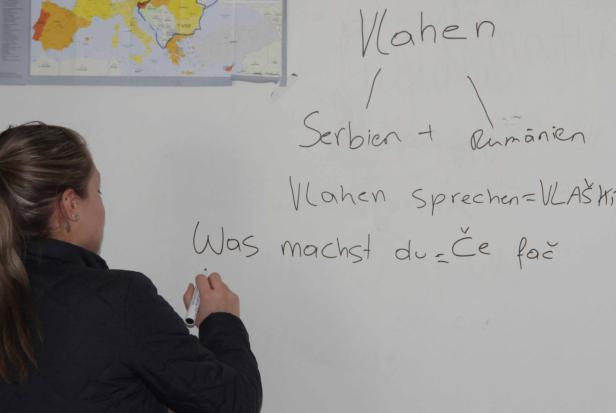 Vlahen
Serbien + Rumänien
Vlahen sprechen=VLAŠKi
Was machst du = Če fač